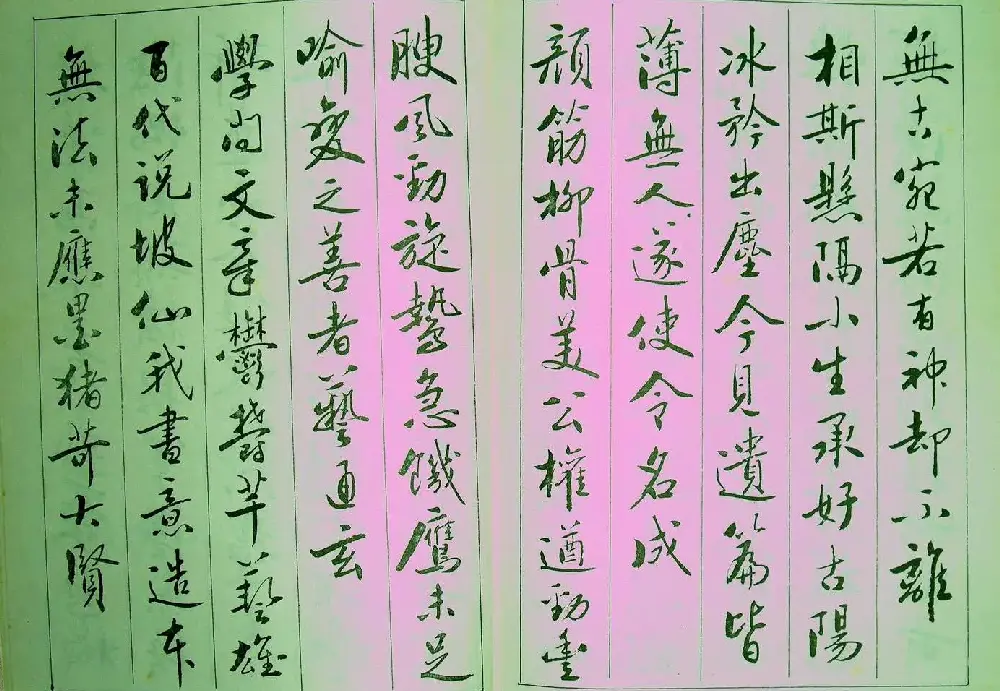 無古宛若有神却不離
相斯懸隔小生承好古陽
冰矜出塵今見遺篇皆
薄無人遂使令名成
顏筋柳骨美公權遒勁豊
腴風勁旋鷙急饑鷹未足
喻變之善者藝通玄
學問文章鬱鬱芊藝雄
百代説坡仙我書意造本
無法未應墨猪苛大賢